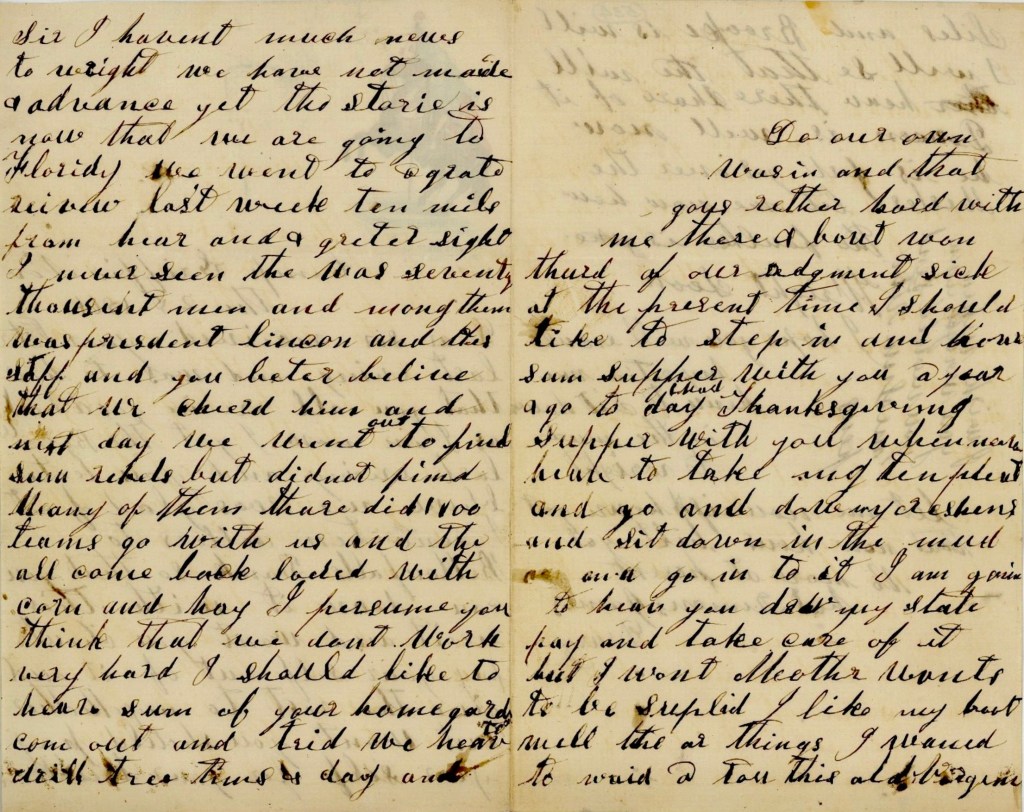 Sir I havent much news
to wright we have not made
a advance yet the storie is
now that we are going to
Floridy we went to a grate
reivew last week ten mile
from hear and a greter sight
I never seen the was seventy
thousent men and mong them
was presdent lincon and his
staff and you beter belive
that we cheerd him and
next day we went out to find
sum rebels but didnot find
Many of them thare did 1100
teams go with us and the
all come back loded with
corn and hay I persume you
think that we dont work
very hard I should like to
have sum of your home gards
com out and trid we have to
drill tree tims a day and
Do our own
wasin and that
goys rether hard with
me there a bout won
thurd of our redgment sick
at the present time I should
like to step in and have
sum supper with you a year
a go to day I had Thanksgiving
supper with you when now
have to take my ten plent
and go and dore my crekens
and sit down in the mud
and go in to it I am goin
to have you draw my state
pay and take care of it
but I wont Meother wants
to be suplid I like my boot
well the ar things I waned
to waid a tou this old virgene